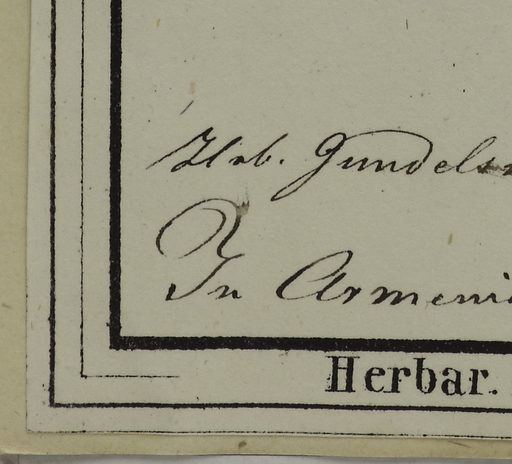 Hrb. Gundels
In Armeni
Herbar.